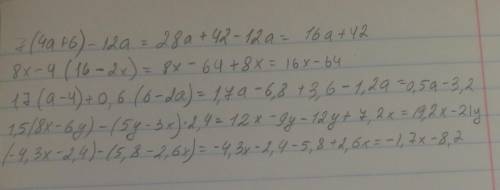 7(4a+6)-12a=28a+42-12a=16a+42
8x-4(16-2x)=8x-64+8x=16x-64
1,7(a-4)+0,6(6-2a)=1,7a-6,8+3,6-1,2a=0,5a-3,2
1,5(8x-6y)-(5y-3x)·2,4=12x-9y-12y+7,2x=19,2x-21y
(-4,3x-2,4)-(5,8-2,6x)=-4,3x-2,4-5,8+2,6x=-1,7x-8,2